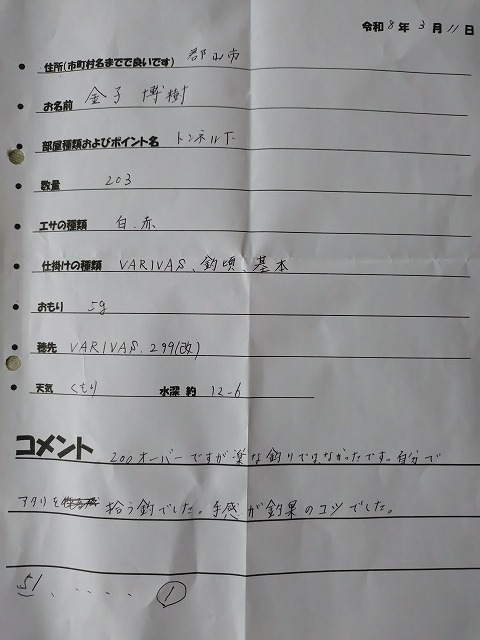 令和 8 年 3 月 11 日
● 住所(市町村名までで良いです) 郡山市
● お名前 金子 博樹
● 部屋種類およびポイント名 トンネル下
● 数量 203
● エサの種類 白.赤
● 仕掛けの種類 VARIVAS、釣頃、基本
● おもり 5g
● 穂先 VARIVAS.299(改)
● 天気 くもり 水深 約 12-6
コメント 200オーバーですが楽な釣りではなかったです。自分で
アタリを 拾う釣でした。手感が釣果のコツでした。
51 ..... ①